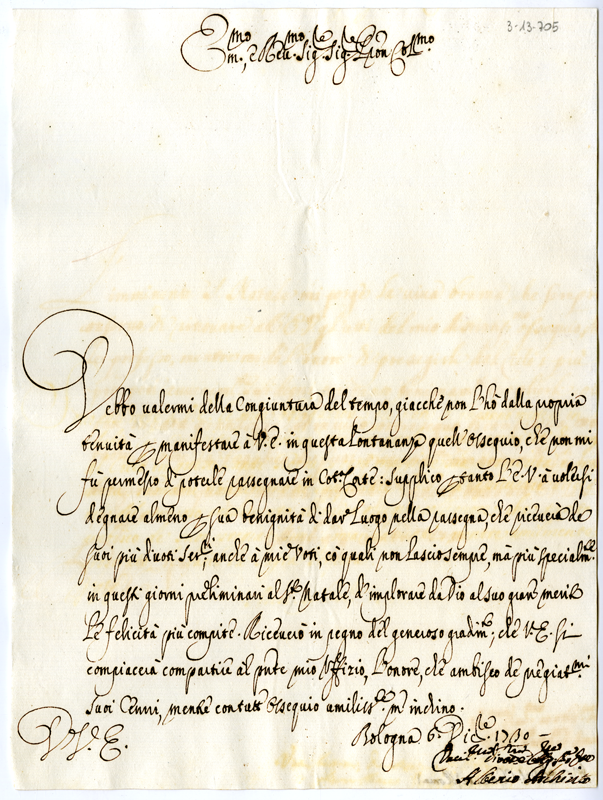 3-13-705
Em.mo, e Rev.mo Sig.re Sig.re Pron Col.mo
Debbo valermi della Congiuntura del tempo, giacchè non l'hò dalla propria
benuità manifestare à V. E. in questa lontananza quell'ossequio, che non mi
fù permesso di poterle rassegnare in Cot.ta Corte: Supplico tanto l'E. V. à volersi
degnare almeno sua benignità di dar luogo nella rassegna, che riceverà de
suoi più divoti Ser.ri, anche à miei Voti, co quali non lascio sempre, mà più specialm.te
in questi giorni preliminari al S.to Natale, d'implorare da Dio al suo gran merito
le felicità più compite. Riceverò in pegno del generoso gradim.to, che V. E. si
compiacerà compartire al pnte mio Uffizio, l'onore, che ambisco de pregiat.mi
suoi Cenni, mentre con tutto ossequio umiliss.te m'inchino.
Bologna 6. Dic.re 1730
D. V. E.